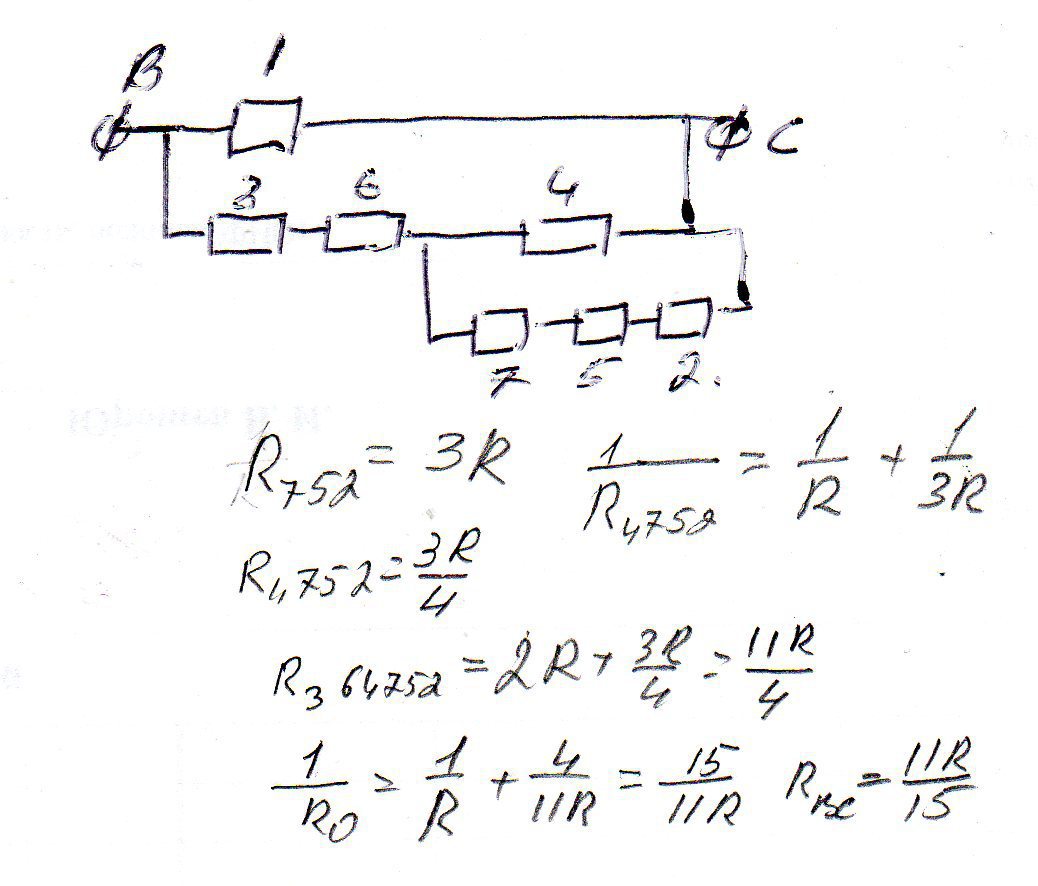 B 1
C
3 6 4
7 5 2.
R₇₅₂ = 3R 1/R₄₇₅₂ = 1/R + 1/3R
R₄₇₅₂ = 3R/4
R₃₆₄₇₅₂ = 2R + 3R/4 = 11R/4
1/R₀ = 1/R + 4/11R = 15/11R R_BC = 11R/15